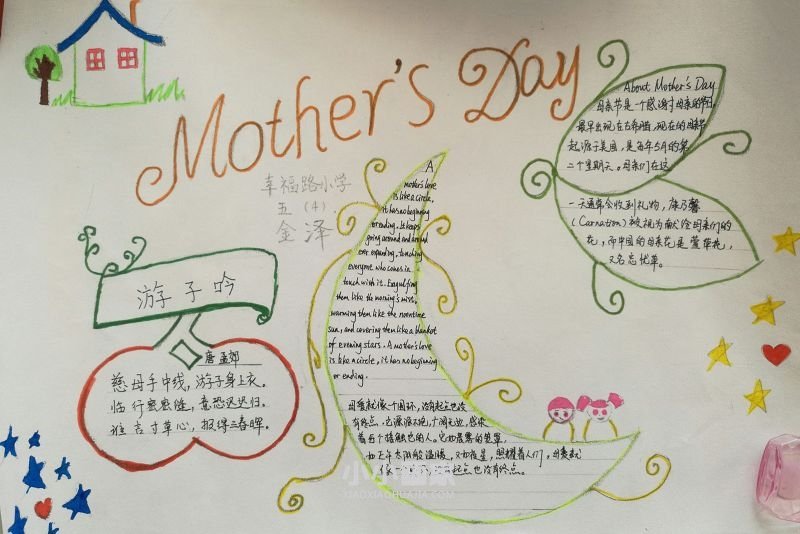 Mother's Day
幸福路小学
五（4）
金泽
About Mother's Day
母亲节是一个感谢母亲的节日，
最早出现在古希腊，现在的母亲节
起源于美国，是每年5月的第
二个星期天。母亲们在这
一天通常会收到礼物，康乃馨
（Carnation）被视为献给母亲们的
花，而中国的母亲花是萱草花，
又名忘忧草。
游子吟
唐 孟郊
慈母手中线，游子身上衣。
临行密密缝，意恐迟迟归。
谁言寸草心，报得三春晖。
A
mother's love
is like a circle,
it has no beginning
or ending. It keeps
going around and around
ever expanding, touching
everyone who comes in
touch with it. Engulfing
them like the morning's mist,
warming them like the noontime
sun, and covering them like a blanket
of evening stars. A mother's love
is like a circle, it has no beginning
or ending.
母爱就像一个圆环，没有起点也没
有终点，它源源不绝，广阔无边，感染
着每个接触它的人。它如晨雾的笼罩，
如正午太阳般温暖，又如夜星，照耀着人们。母爱就
像一个 起点也没有终点。
小小画家
XIAOXIAOHUAJIA.COM